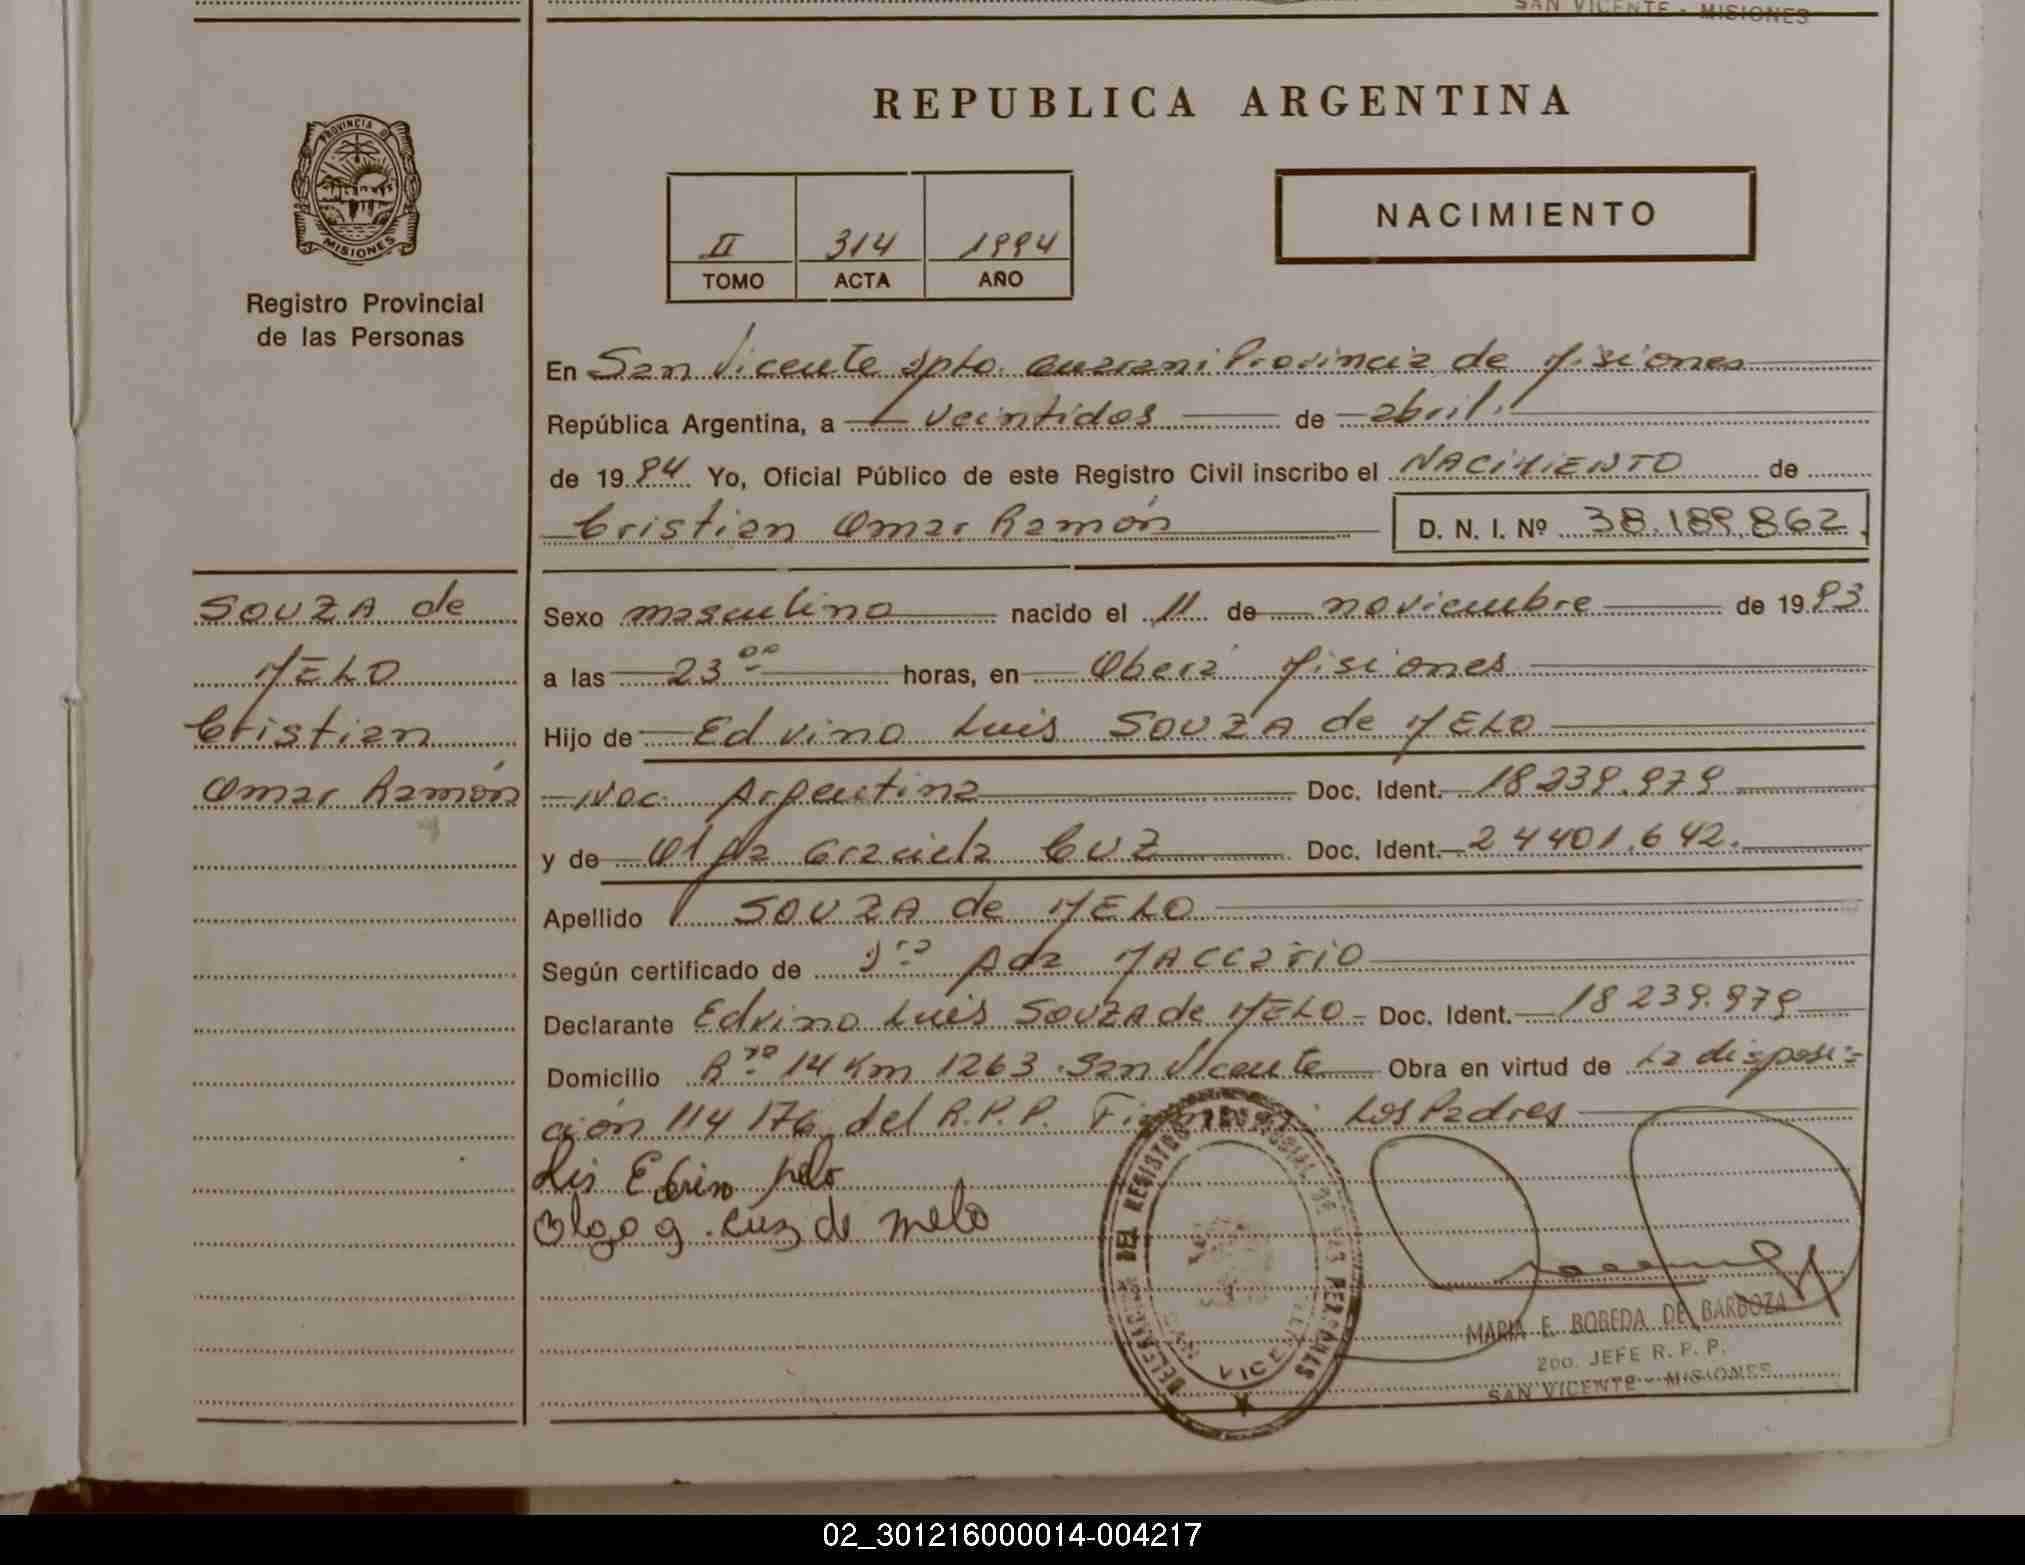 SAN VICENTE - MISIONES
REPUBLICA ARGENTINA
PROVINCIA D
MISIONES
Registro Provincial
de las Personas
II 314 1994
TOMO ACTA AÑO
NACIMIENTO
En San Vicente dpto. Guarani Provincia de Misiones
República Argentina, a veintidos de abril.
de 19 94 Yo, Oficial Público de este Registro Civil inscribo el NACIMIENTO de
Cristian Omar Ramón D. N. I. Nº 38.189.862.
SOUZA de
MELO
Cristian
Omar Ramón
Sexo masculino nacido el 11 de noviembre de 19 93
a las 23 00 horas, en Oberá Misiones
Hijo de Edvino Luis SOUZA de MELO
Nac. Argentina Doc. Ident. 18 239.979
y de Olga Graciela CUZ Doc. Ident. 24401.642.
Apellido SOUZA de MELO
Según certificado de Dra Ada Maccario
Declarante Edvino Luis SOUZA de MELO Doc. Ident. 18 239.979
Domicilio Rta 14 Km 1263 San Vicente Obra en virtud de la disposi-
ción 114 176 del R.P.P. Los Padres
melo
Olga g. cuz de melo
DELEGACION DEL REGISTRO PROVINCIAL DE LAS PERSONAS
SAN VICENTE
MARIA E. BOBEDA DE BARBOZA
2do. JEFE R. P. P.
SAN VICENTE - MISIONES
02_301216000014-004217